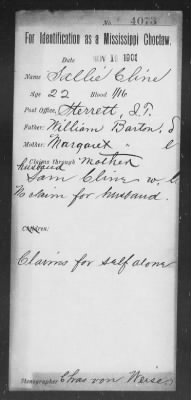 No. 4073
For Identification as a Mississippi Choctaw.
Date NOV 18 1901
Name Sallie Cline
Age 22 Blood 1/16
Post Office, Sterrett, I.T.
Father: William Barton. d
Mother: Margaret " l
Claims through mother
husband
Sam Cline w.
No claim for husband.
Children:
Claims for self alone
Stenographer Chas von Weise